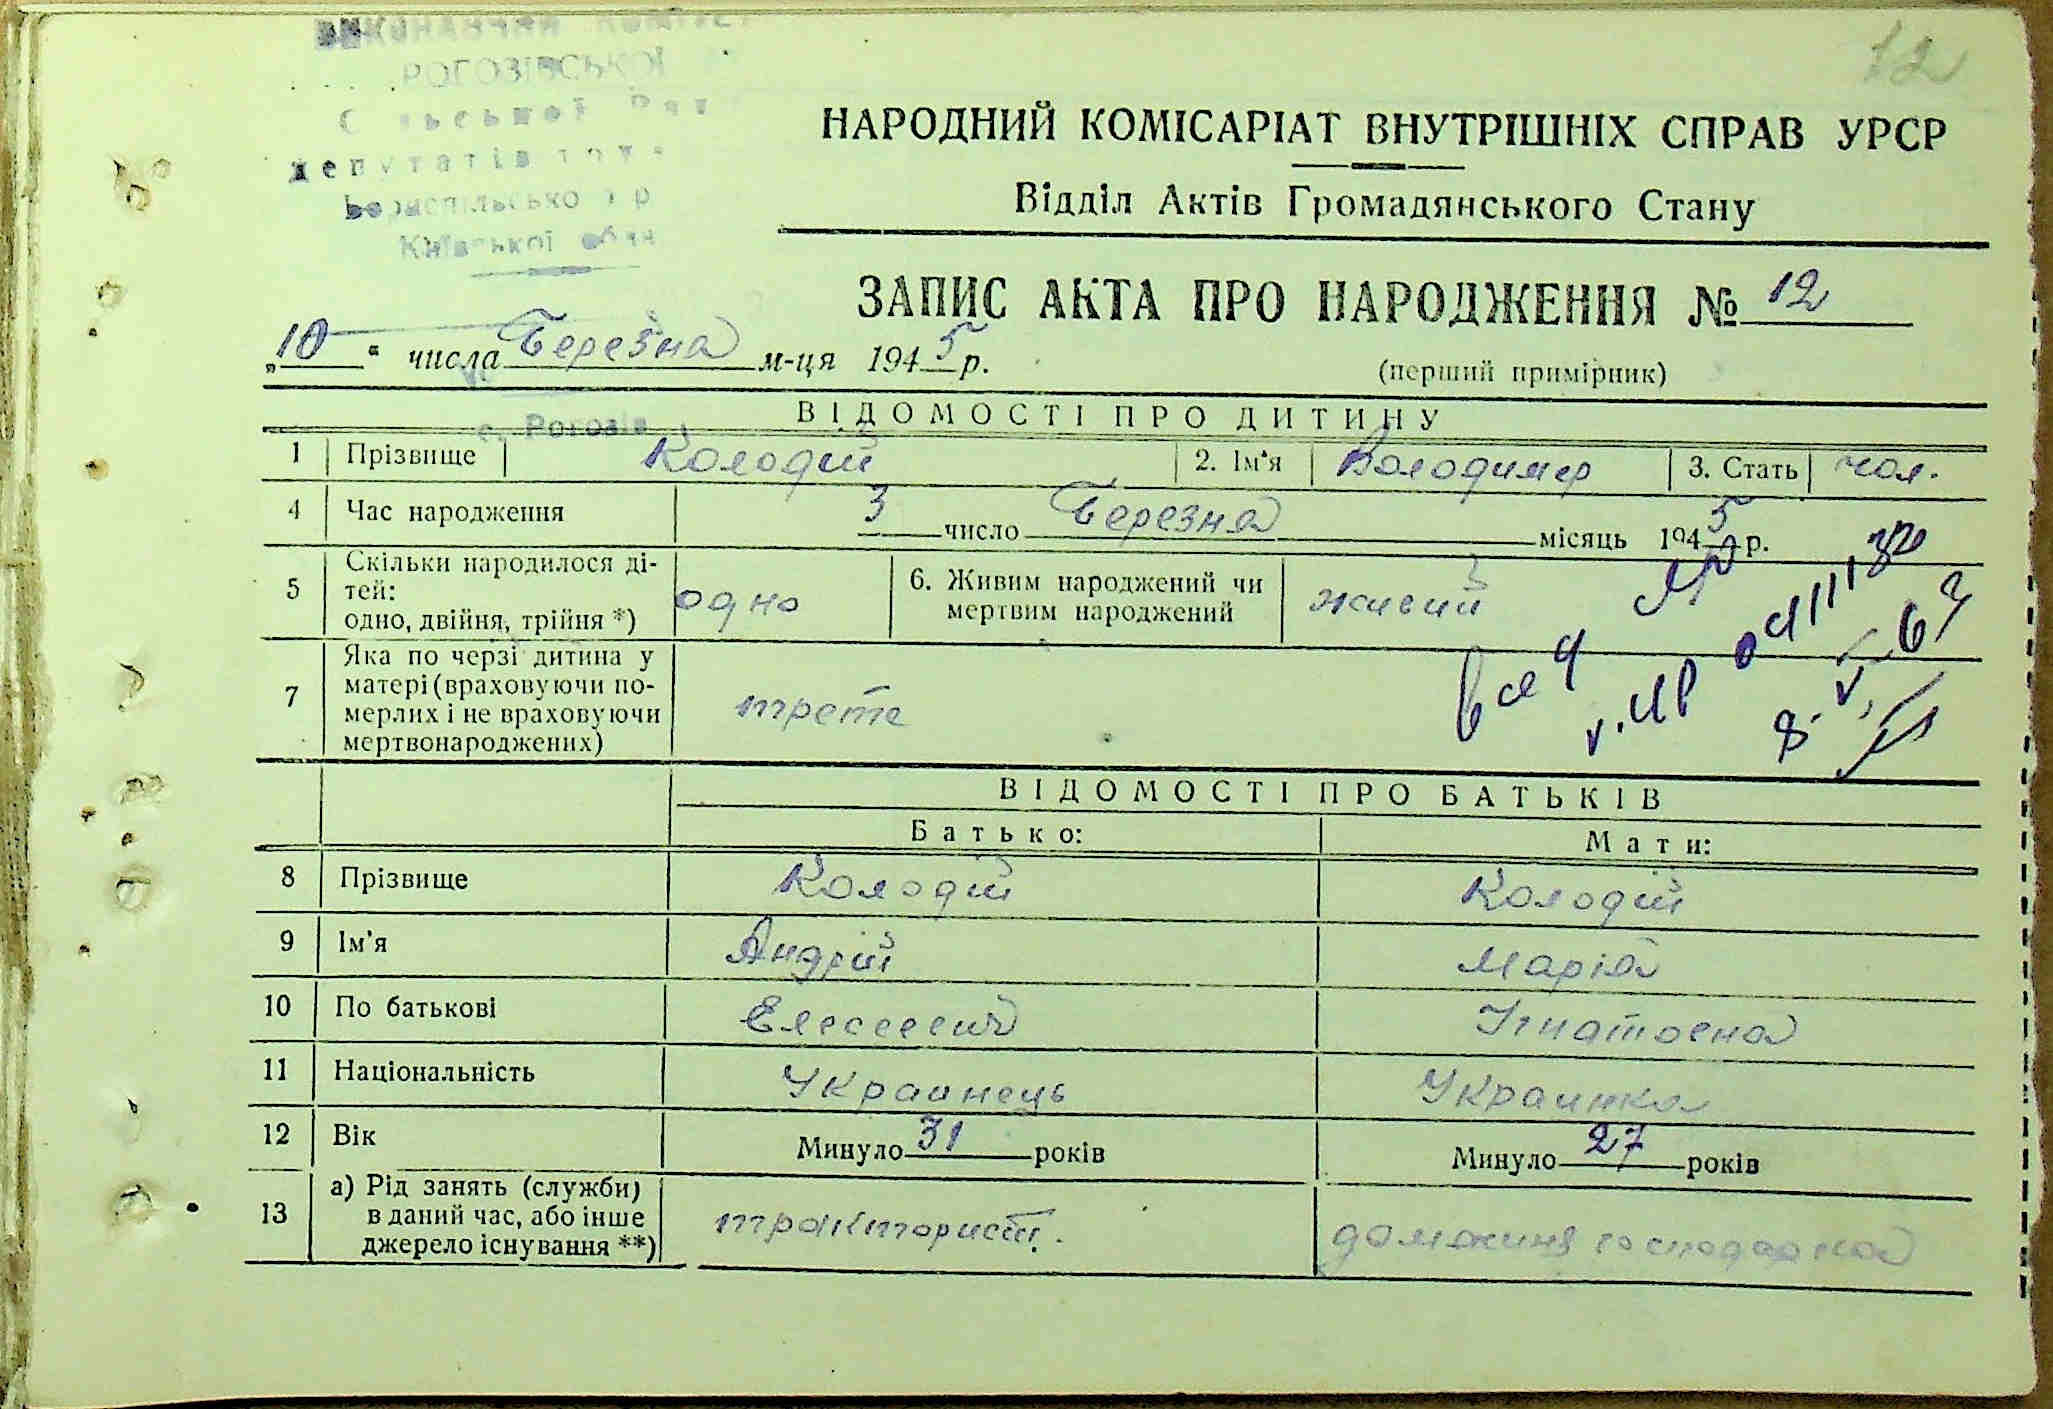 ВИКОНАВЧИЙ КОМІТЕ
РОГОЗІВСЬКОЇ
Сільської Рад
депутатів
Бориспільсько р
Київської обл
12
НАРОДНИЙ КОМІСАРІАТ ВНУТРІШНІХ СПРАВ УРСР
Відділ Актів Громадянського Стану
ЗАПИС АКТА ПРО НАРОДЖЕННЯ № 12
„10“ числа Березня м-ця 1945 р.
(перший примірник)
с. Рогозів
ВІДОМОСТІ ПРО ДИТИНУ
1 Прізвище Колодій 2. Ім'я Володимер 3. Стать чол.
4 Час народження 3 число Березня місяць 1945 р.
5 Скільки народилося ді-
тей:
одно, двійня, трійня *) одно 6. Живим народжений чи
мертвим народжений живий
7 Яка по черзі дитина у
матері (враховуючи по-
мерлих і не враховуючи
мертвонароджених) трете
ВІДОМОСТІ ПРО БАТЬКІВ
Батько: Мати:
8 Прізвище Колодій Колодій
9 Ім'я Андрій Марія
10 По батькові Елесеевич Игнатовна
11 Національність Украинець Украинка
12 Вік Минуло 31 років Минуло 27 років
13 а) Рід занять (служби)
в даний час, або інше
джерело існування **) тракторист. домашня господарка